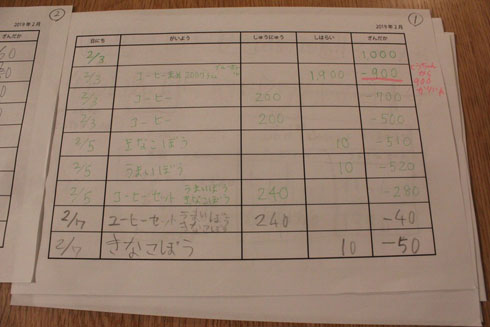 ② 2019年2月
ざんだか
2019年2月 ①
日にち がいよう しゅうにゅう しはらい ざんだか
2/3 1,000
2/3 コーヒー 200グラム 1,900 -900
2/3 コーヒー 200 -700
2/3 コーヒー 200 -500
2/5 きなこぼう 10 -510
2/5 うまいぼう 10 -520
2/5 コーヒーセット うまいぼう きなこぼう 240 -280
2/7 コーヒーセット うまいぼう きなこぼう 240 -40
2/7 きなこぼう 10 -50
から
900